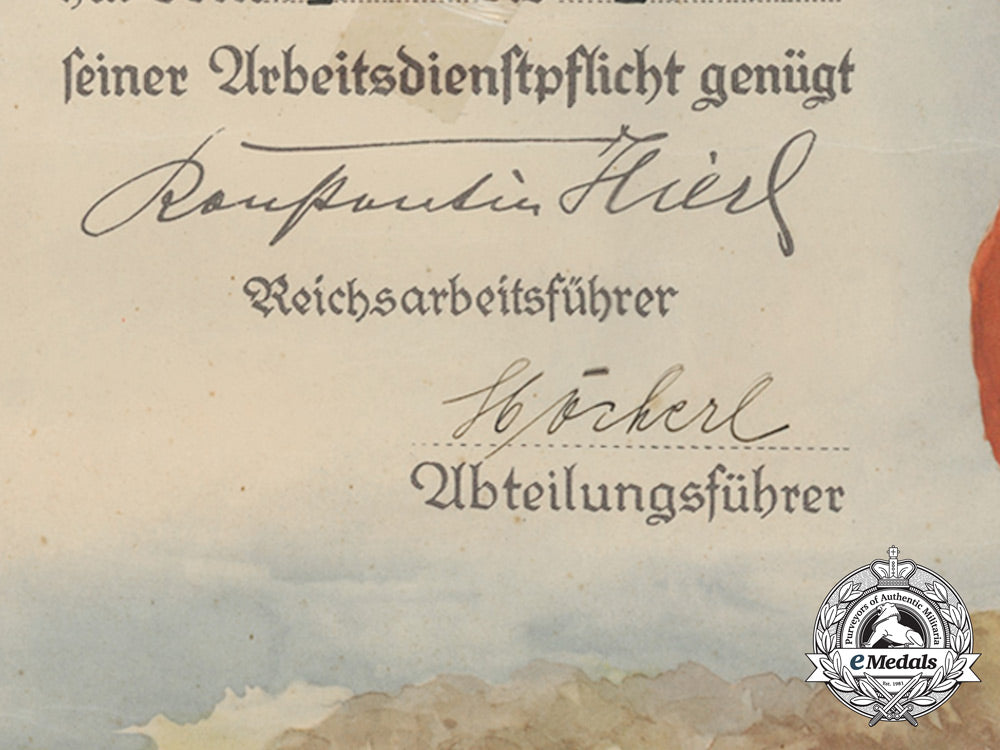 seiner Arbeitsdienstpflicht genügt
Konstantin Hierl
Reichsarbeitsführer
Höckerl
Abteilungsführer
Purveyors of Authentic Militaria
eMedals
Est. 1981